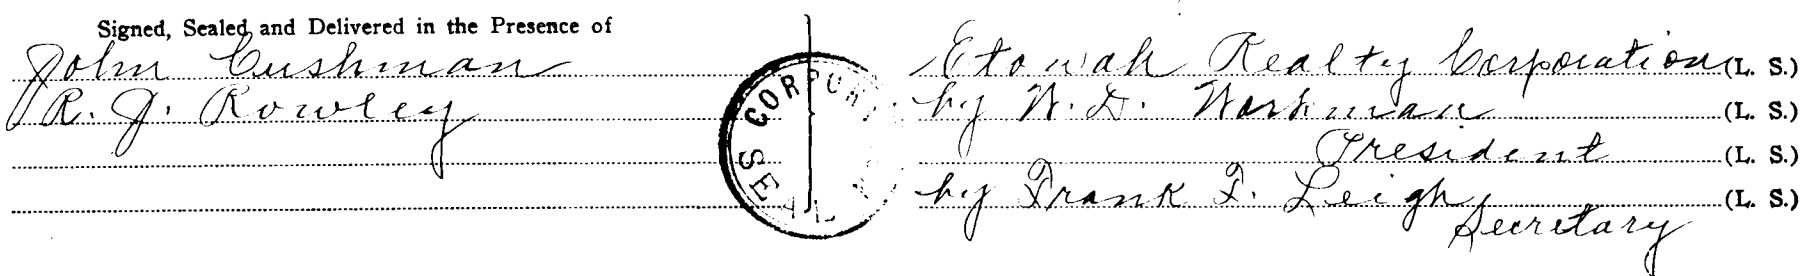 Signed, Sealed and Delivered in the Presence of
John Cushman
R. J. Rowley
CORPORATE SEAL
Etowah Realty Corporation (L. S.)
by W. D. Workman (L. S.)
President (L. S.)
by Frank F. Leigh (L. S.)
Secretary